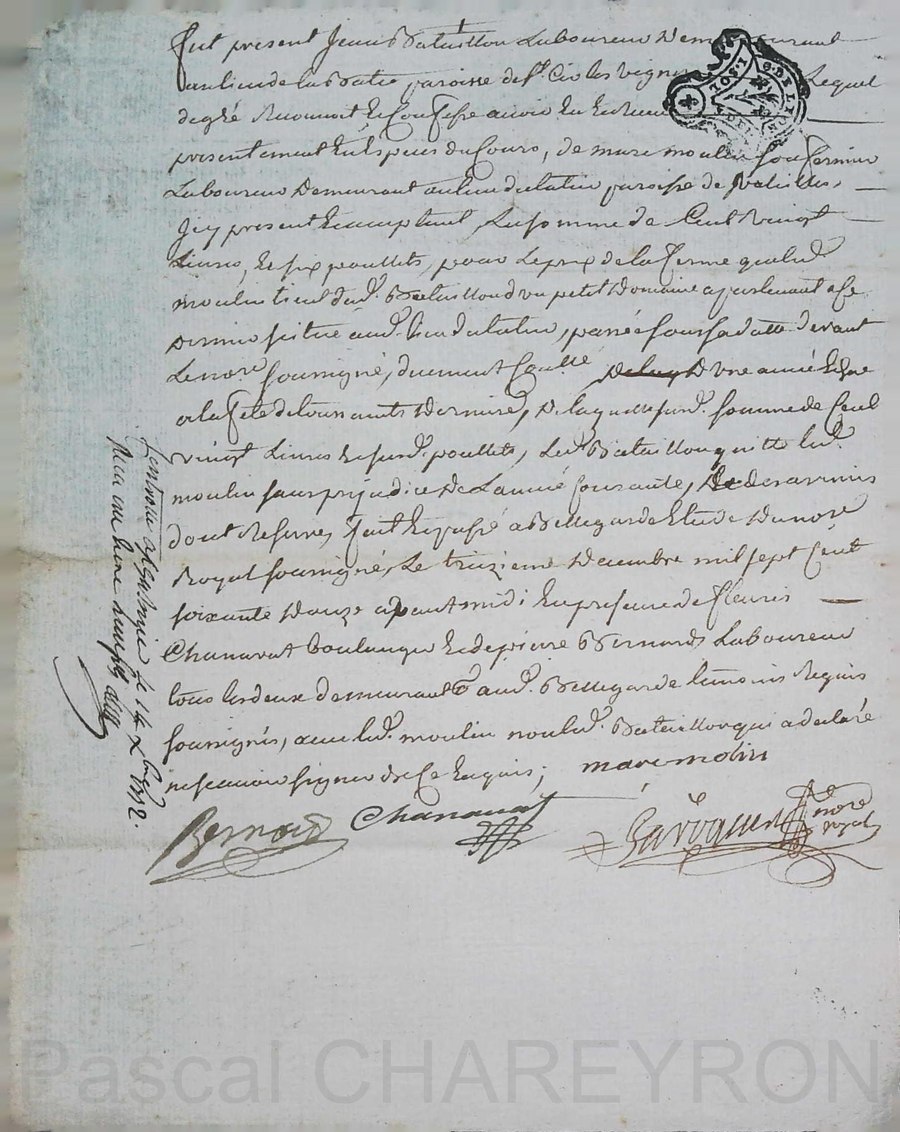 fut present Jean Bataillon Laboureur Demeurant
au lieu de la Batie paroisse de St. Cir les vignes Lequel
de gré Reconnoit et Confesse avoir eu et Receu
presentement en Especes du Cours, de marc moulin son fermier
Laboureur Demeurant au lieu du paroisse de Valeilles,
Icy present et acceptant, La somme de Cent vingt
Livres, et six poullets, pour Le prix de la ferme que led.
moulin tient dud. Bataillon d'un petit Domaine apartenant a ce
dernier situé aud. lieu passée sous sa datte devant
Le nore. soussigné, duement Coullé d'une année echue
a la fete de toussaints Derniere, De laquelle susd. somme de Cent
vingt Livres et susd. poullets, Led. Bataillon quitte led.
moulin sans prejudice de L'année Courante,
dont Reserve, fait et passé a Bellegarde Etude Du nore
Royal soussigné, Le treizieme Decembre mil sept Cent
soixante Douze apant midi En presence de fleuris
Chanavat boulanger et de pierre Bernard Laboureur
tous les deux demeurant aud. Bellegarde temoins Requis
soussignés, avec led. moulin non led. Bataillon qui a declaré
ne scavoir signer de ce Enquis; marc molin
Bernard Chanavat nore royal
le 14 Xbre 1772.
Recu
G. DE LYON